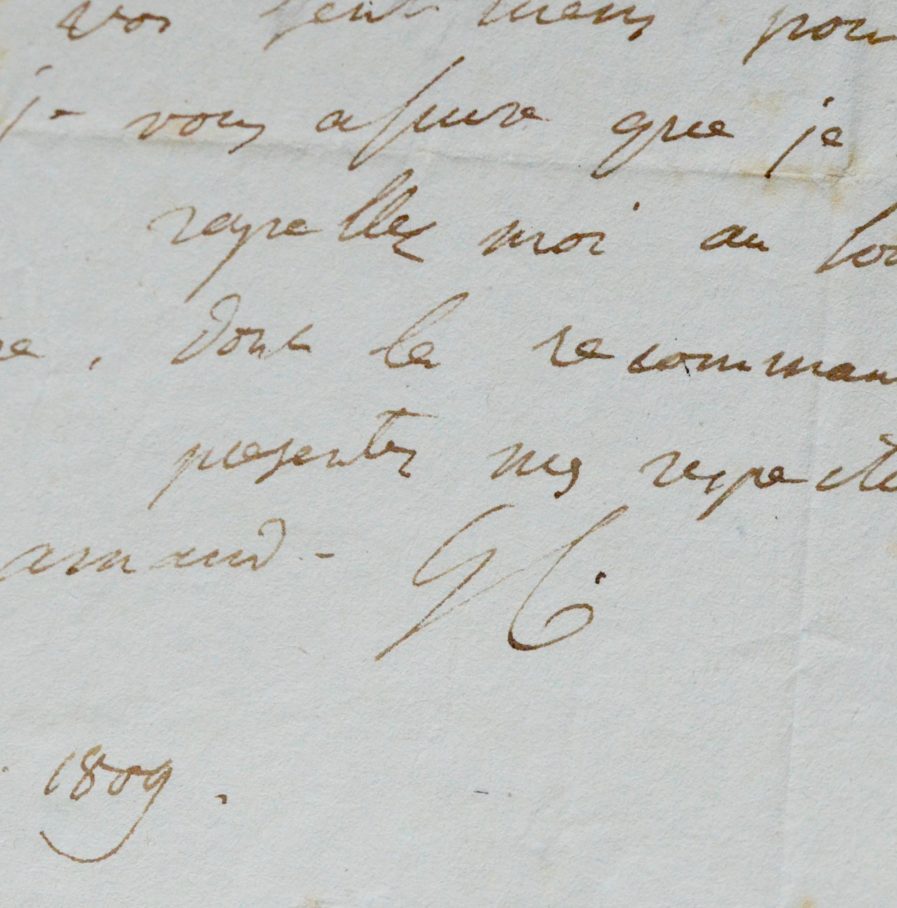 vos sentimens pou
je vous assure que je
rapellez moi au
. dont la recomman
presentez mes respects
arnaud -
1809.